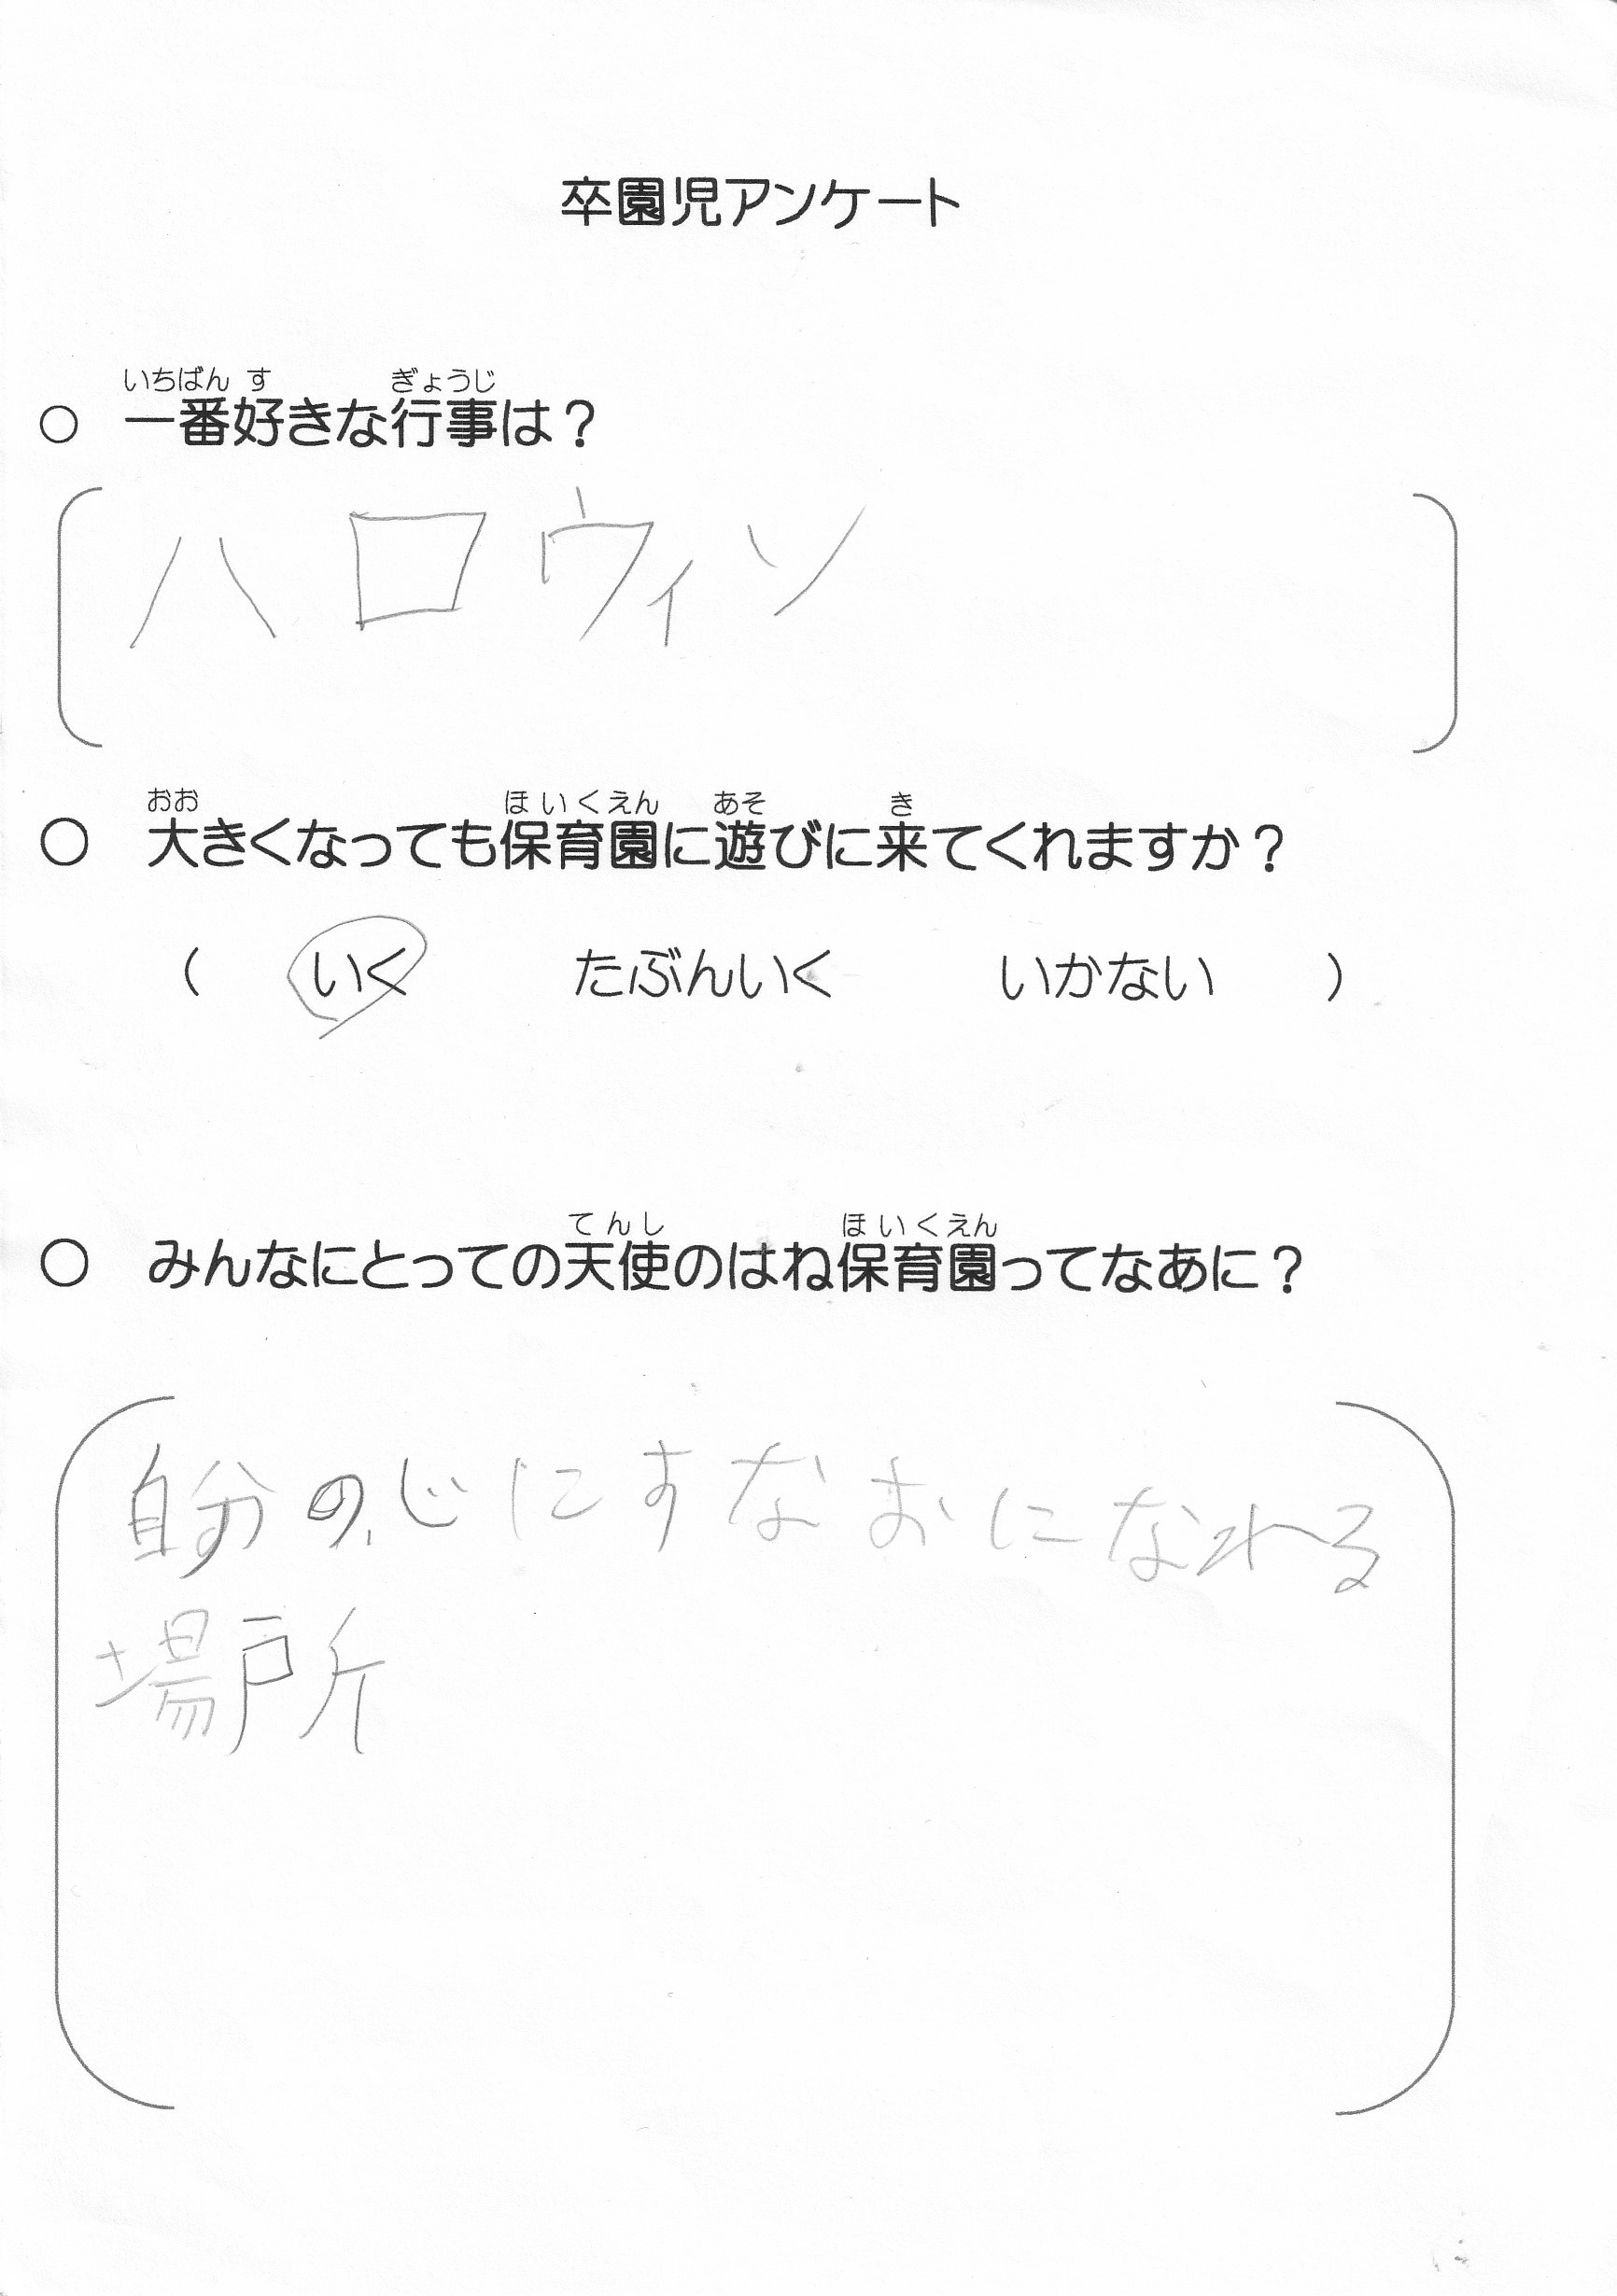 卒園児アンケート
いちばん す ぎょうじ
○ 一番好きな行事は？
ハロウィン
おお ほいくえん あそ き
○ 大きくなっても保育園に遊びに来てくれますか？
（ いく たぶんいく いかない ）
てんし ほいくえん
○ みんなにとっての天使のはね保育園ってなあに？
自分の心にすなおになれる
場所